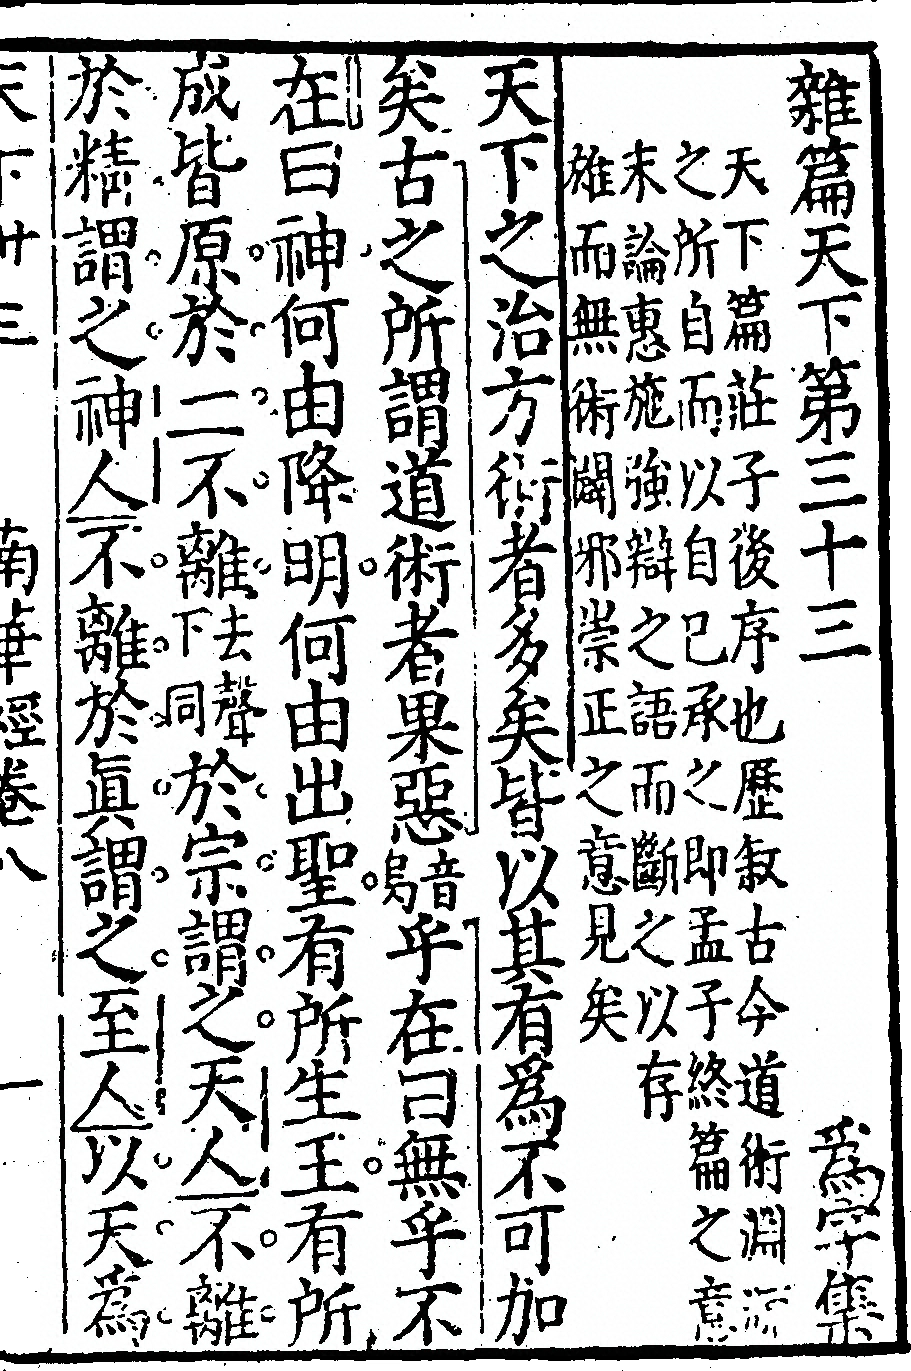 雜篇天下第三十三　爲字集
天下篇莊子後序也歷敘古今道術淵源
之所自而以自己承之即孟子終篇之意
末論惠施強辯之語而斷之以存
雄而無術闢邪崇正之意見矣
天下之治方術者多矣皆以其有爲不可加
矣古之所謂道術者果惡音烏乎在曰無乎不
在曰神何由降明何由出聖有所生王有所
成皆原於一不離去聲下同於宗謂之天人不離
於精謂之神人不離於眞謂之至人以天爲
天下卅三　南華經卷八　一